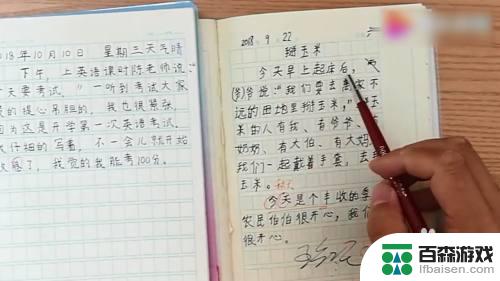 2018年10月10日 星期三天气晴
下午,上英语课时陈老师说:
天要考试。”一听到考试大家
的提心吊胆的,我也很紧张,
有这是开学第一次英语考试。
仔细的写着,不一会儿就开始
了,我觉的我能考100分。
2018 9 22
掰玉米
今天早上起床后,
爷爷说:“我们要去离家不
远的田地里掰玉米,”
米的人有我、有爷爷、
奶奶、有大伯、有大妈,
我们一起戴着手套,去
玉米。秋天
今天是个丰收的季
农民伯伯很开心,我们
很开心。
百森游戏
lfbaisen.com